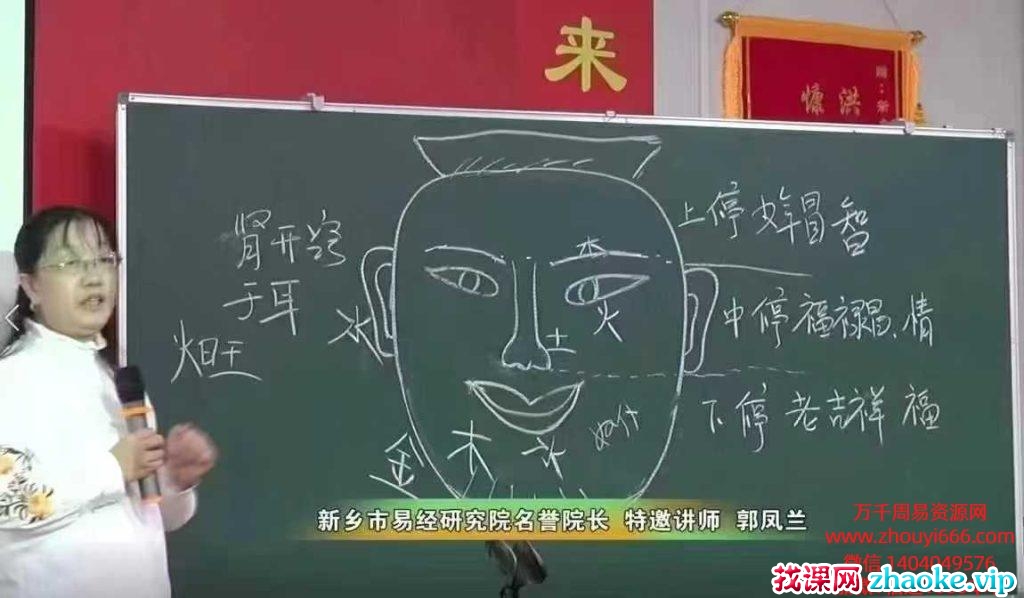 来
洪
慷
肾开窍
于耳
水
木
火
土
上停
智
中停福禄昌.情
下停 老吉祥 福
金 木 水
新乡市易经研究院名誉院长 特邀讲师 郭凤兰
万千周易资源网
www.zhouyi666.com
微信 1404049576
找课网 zhaoke.vip